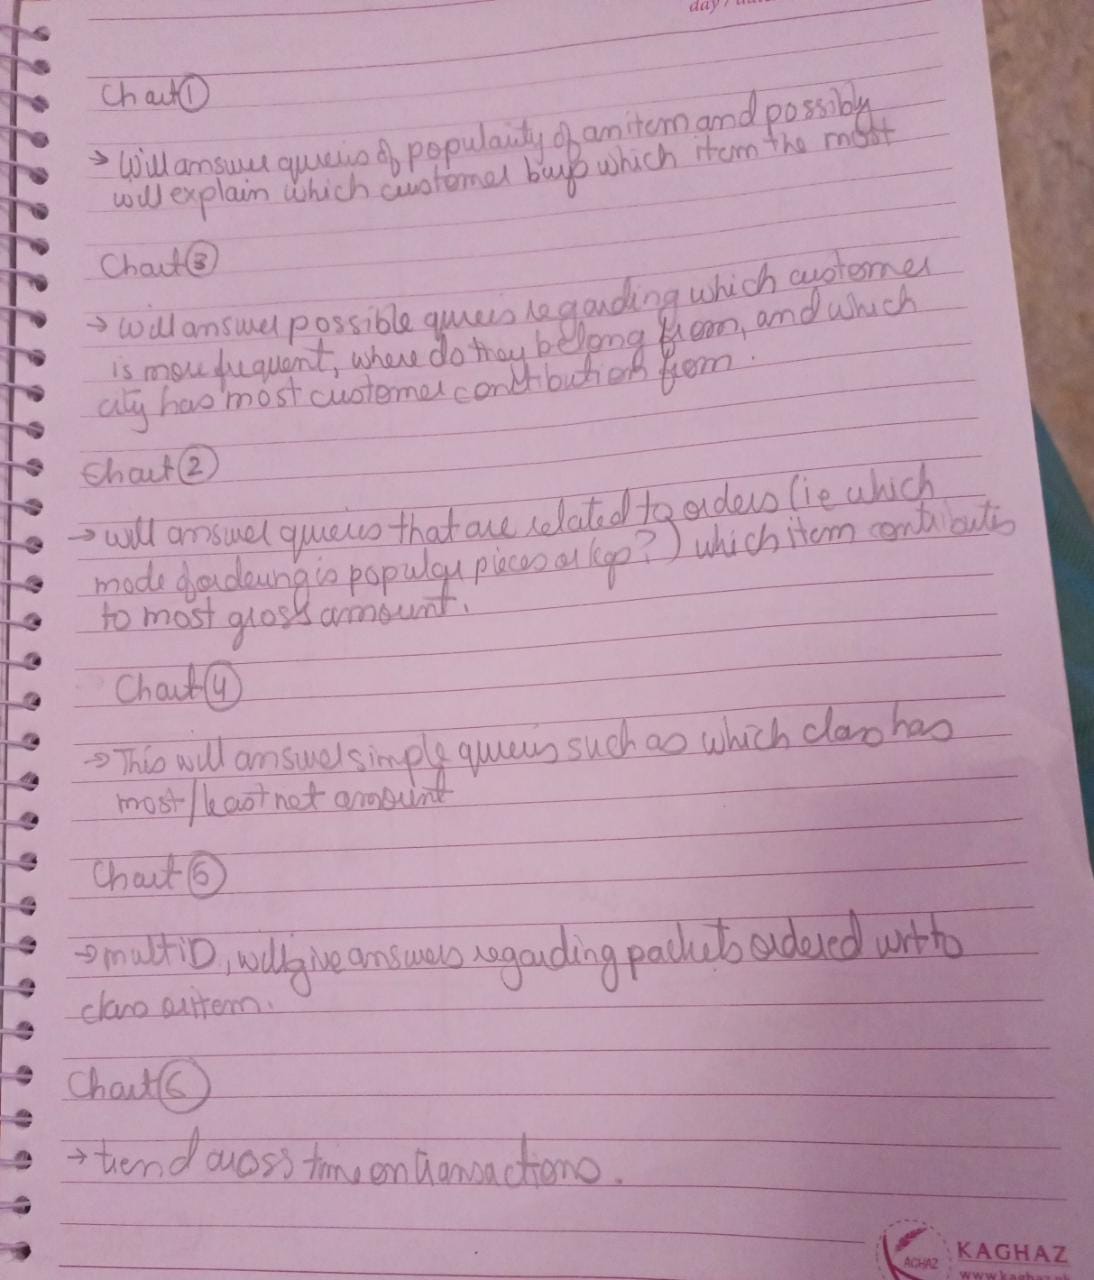 day / dat
Chart ①
→ Will answer queries of popularity of an item and possibly
will explain which customer buys which item the most
Chart ③
→ will answer possible queries regarding which customer
is more frequent, where do they belong from, and which
city has most customer contribution from.
Chart ②
→ will answer queries that are related to orders (ie which
mode of ordering is popular pieces or kgs?) which item contributes
to most gross amount.
Chart ④
→ This will answer simple queries such as which class has
most/least net amount
Chart ⑤
→ multiD, will give answers regarding packets ordered wrt to
class or item.
Chart ⑥
→ trend across time on transactions.
KAGHAZ
AGHAZ